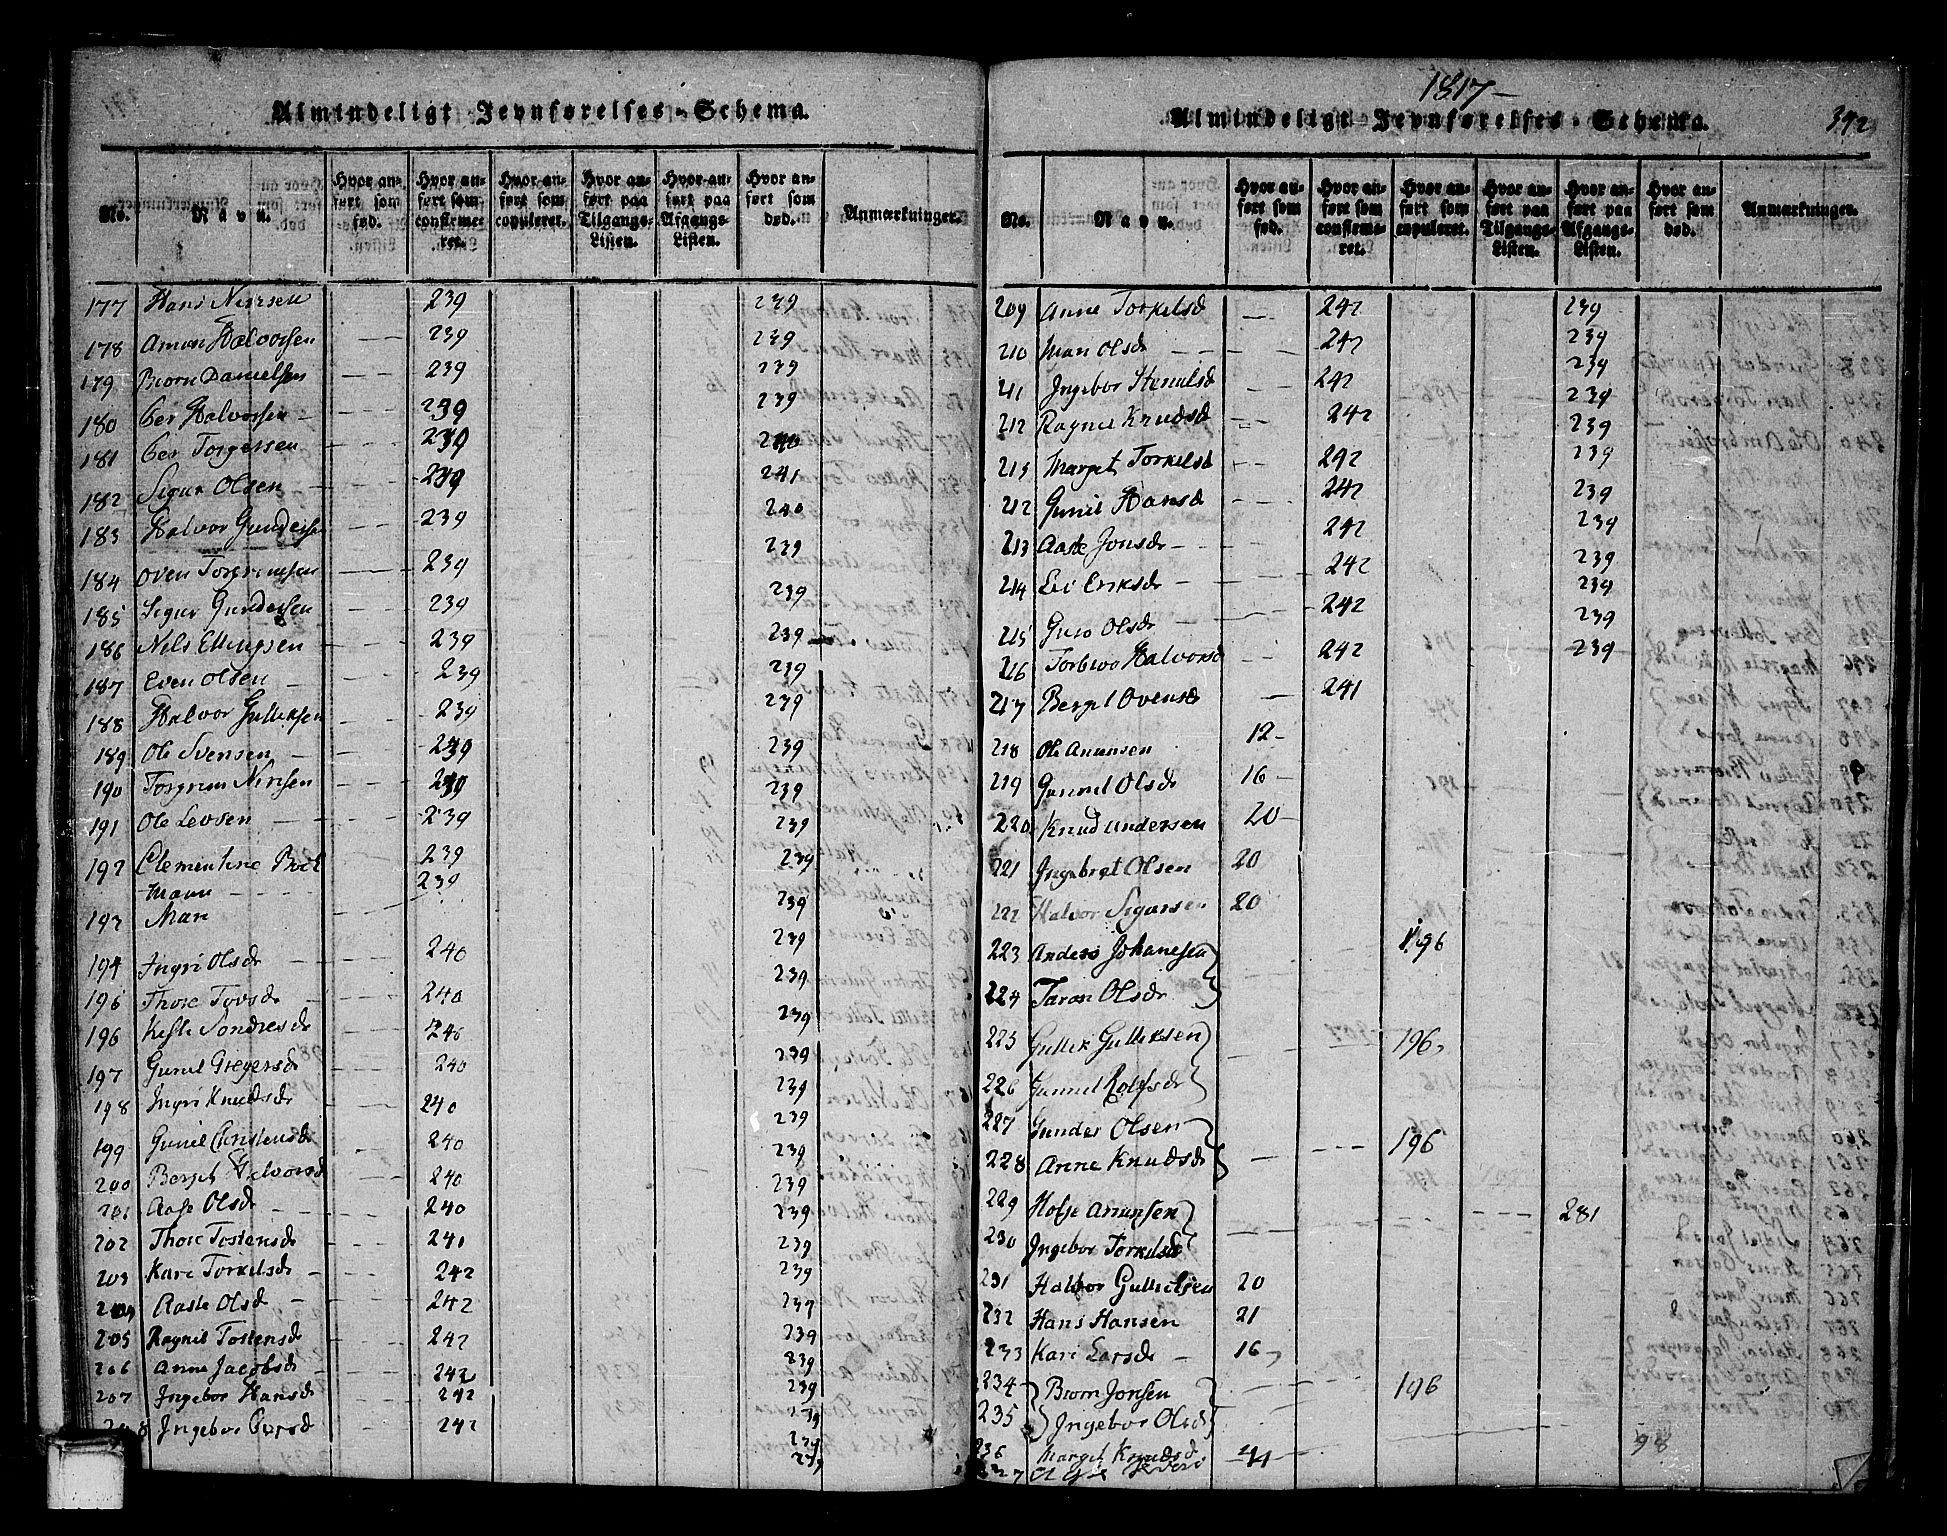 Almindeligt Jevnførelses-Schema.
No. | Navn. | Hvor anført som fød. | Hvor anført som confirmeret. | Hvor anført som copuleret. | Hvor anført paa Tilgangs-Listen. | Hvor anført paa Afgangs-Listen. | Hvor anført som død. | Anmærkninger.
177 Hans Nirisen 239 239
178 Amun Halvorsen 239 239
179 Biorn Danielsen 239 239
180 Halvorsen 239 239
181 Torgersen 239 240
182 Sigur Olsen 239 241
183 Halvor Gundersen 239 240
184 Oven Torgrimsen 239 239
185 Sigur Gundersen 239 239
186 Nils Ellingsen 239 239
187 Even Olsen 239 239
188 Halvor Gulliksen 239 239
189 Ole Svensen 239 239
190 Torgrim Nirisen 239 239
191 Ole Levsen 239 239
192 Clementine 239 239
239
193 Mari 239
194 Ingri Olsdr 240 239
196 Thore Tovsdr 240 239
196 Sondresdr 240 239
197 Gunil Gregersdr 240 239
198 Ingri Knudsdr 240 239
199 Gunil 240 239
200 Berget Halvorsd 240 239
201 Aase Olsdr 240 239
202 Thore Tostensdr 241 239
203 Kari Torkelsdr 242 239
204 Aaste Olsd 242 239
205 Ragnil Tostensdr 242 239
206 Anne Jacobsdr 242 239
207 Ingebor Hansd 242 239
208 Ingebor 242 239
239
1817
Almindeligt Jevnførelses-Schema. 392
No. | Navn. | Hvor anført som fød. | Hvor anført som confirmeret. | Hvor anført som copuleret. | Hvor anført paa Tilgangs-Listen. | Hvor anført paa Afgangs-Listen. | Hvor anført som død. | Anmærkninger.
209 Anne Torkelsd 242 239
210 Mari Olsdr 242 239
211 Ingebor 242 239
212 Ragnil Knudsd 242 239
213 Marget Torkelsd 242 239
212 Gunil Hansd 242 239
213 Aaste Jonsdr 242 239
214 Eriksdr 242 239
215 Guro Olsdr 242 239
216 Torbior Halvorsd 242 239
217 Berget Ovensd 241 239
218 Ole Amunsen 12
219 Gunnil Olsdr 16
220 Knud Andersen 20
221 Ingebret Olsen 20
222 Halvor Sigursen 20
223 Anders Johanesen 196
224 Taran Olsdr
225 Gullik Gulliksen 196
226 Gunnil Rolfsdr
227 Gunder Olsen 196
228 Anne Knudsdr
229 Holje Amunsen 281
230 Ingebor Torkelsd
231 Halvor Gulliksen 20
232 Hans Hansen 21
233 Kari Larsdr 16
234 Biorn Jonsen 196
235 Ingebor Olsd
236 Marget Knudsdr 98